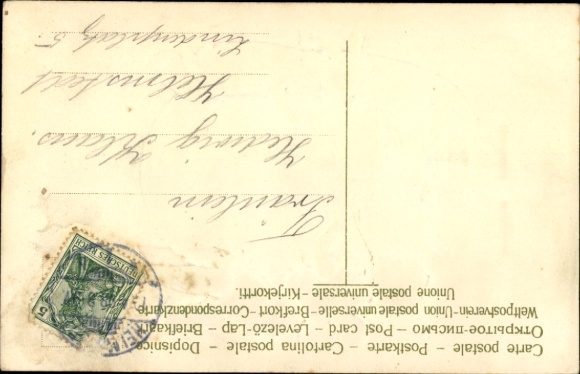 Carte postale – Postkarte – Cartolina postale – Dopisnice
Открытое письмо – Post card – Levelező-Lap – Briefkaart
Weltpostverein-Union postale universelle-Brefkort-Correspondenzkarte
Unione postale universale-Kirjekortti.
DEUTSCHES REICH
5
Fräulein
Hedwig Klaus,
Helmstedt
Lindenplatz 5